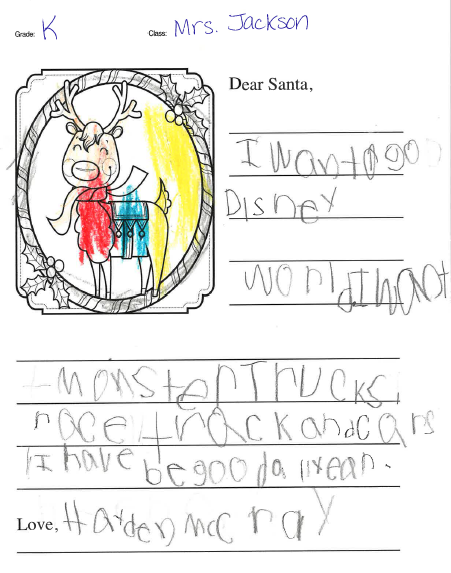 Grade: K Class: Mrs. Jackson
Dear Santa,
I want a go
Disney
world I want
monster Trucks
race track and cars
I have be good all year.
Love, Hayden mccray